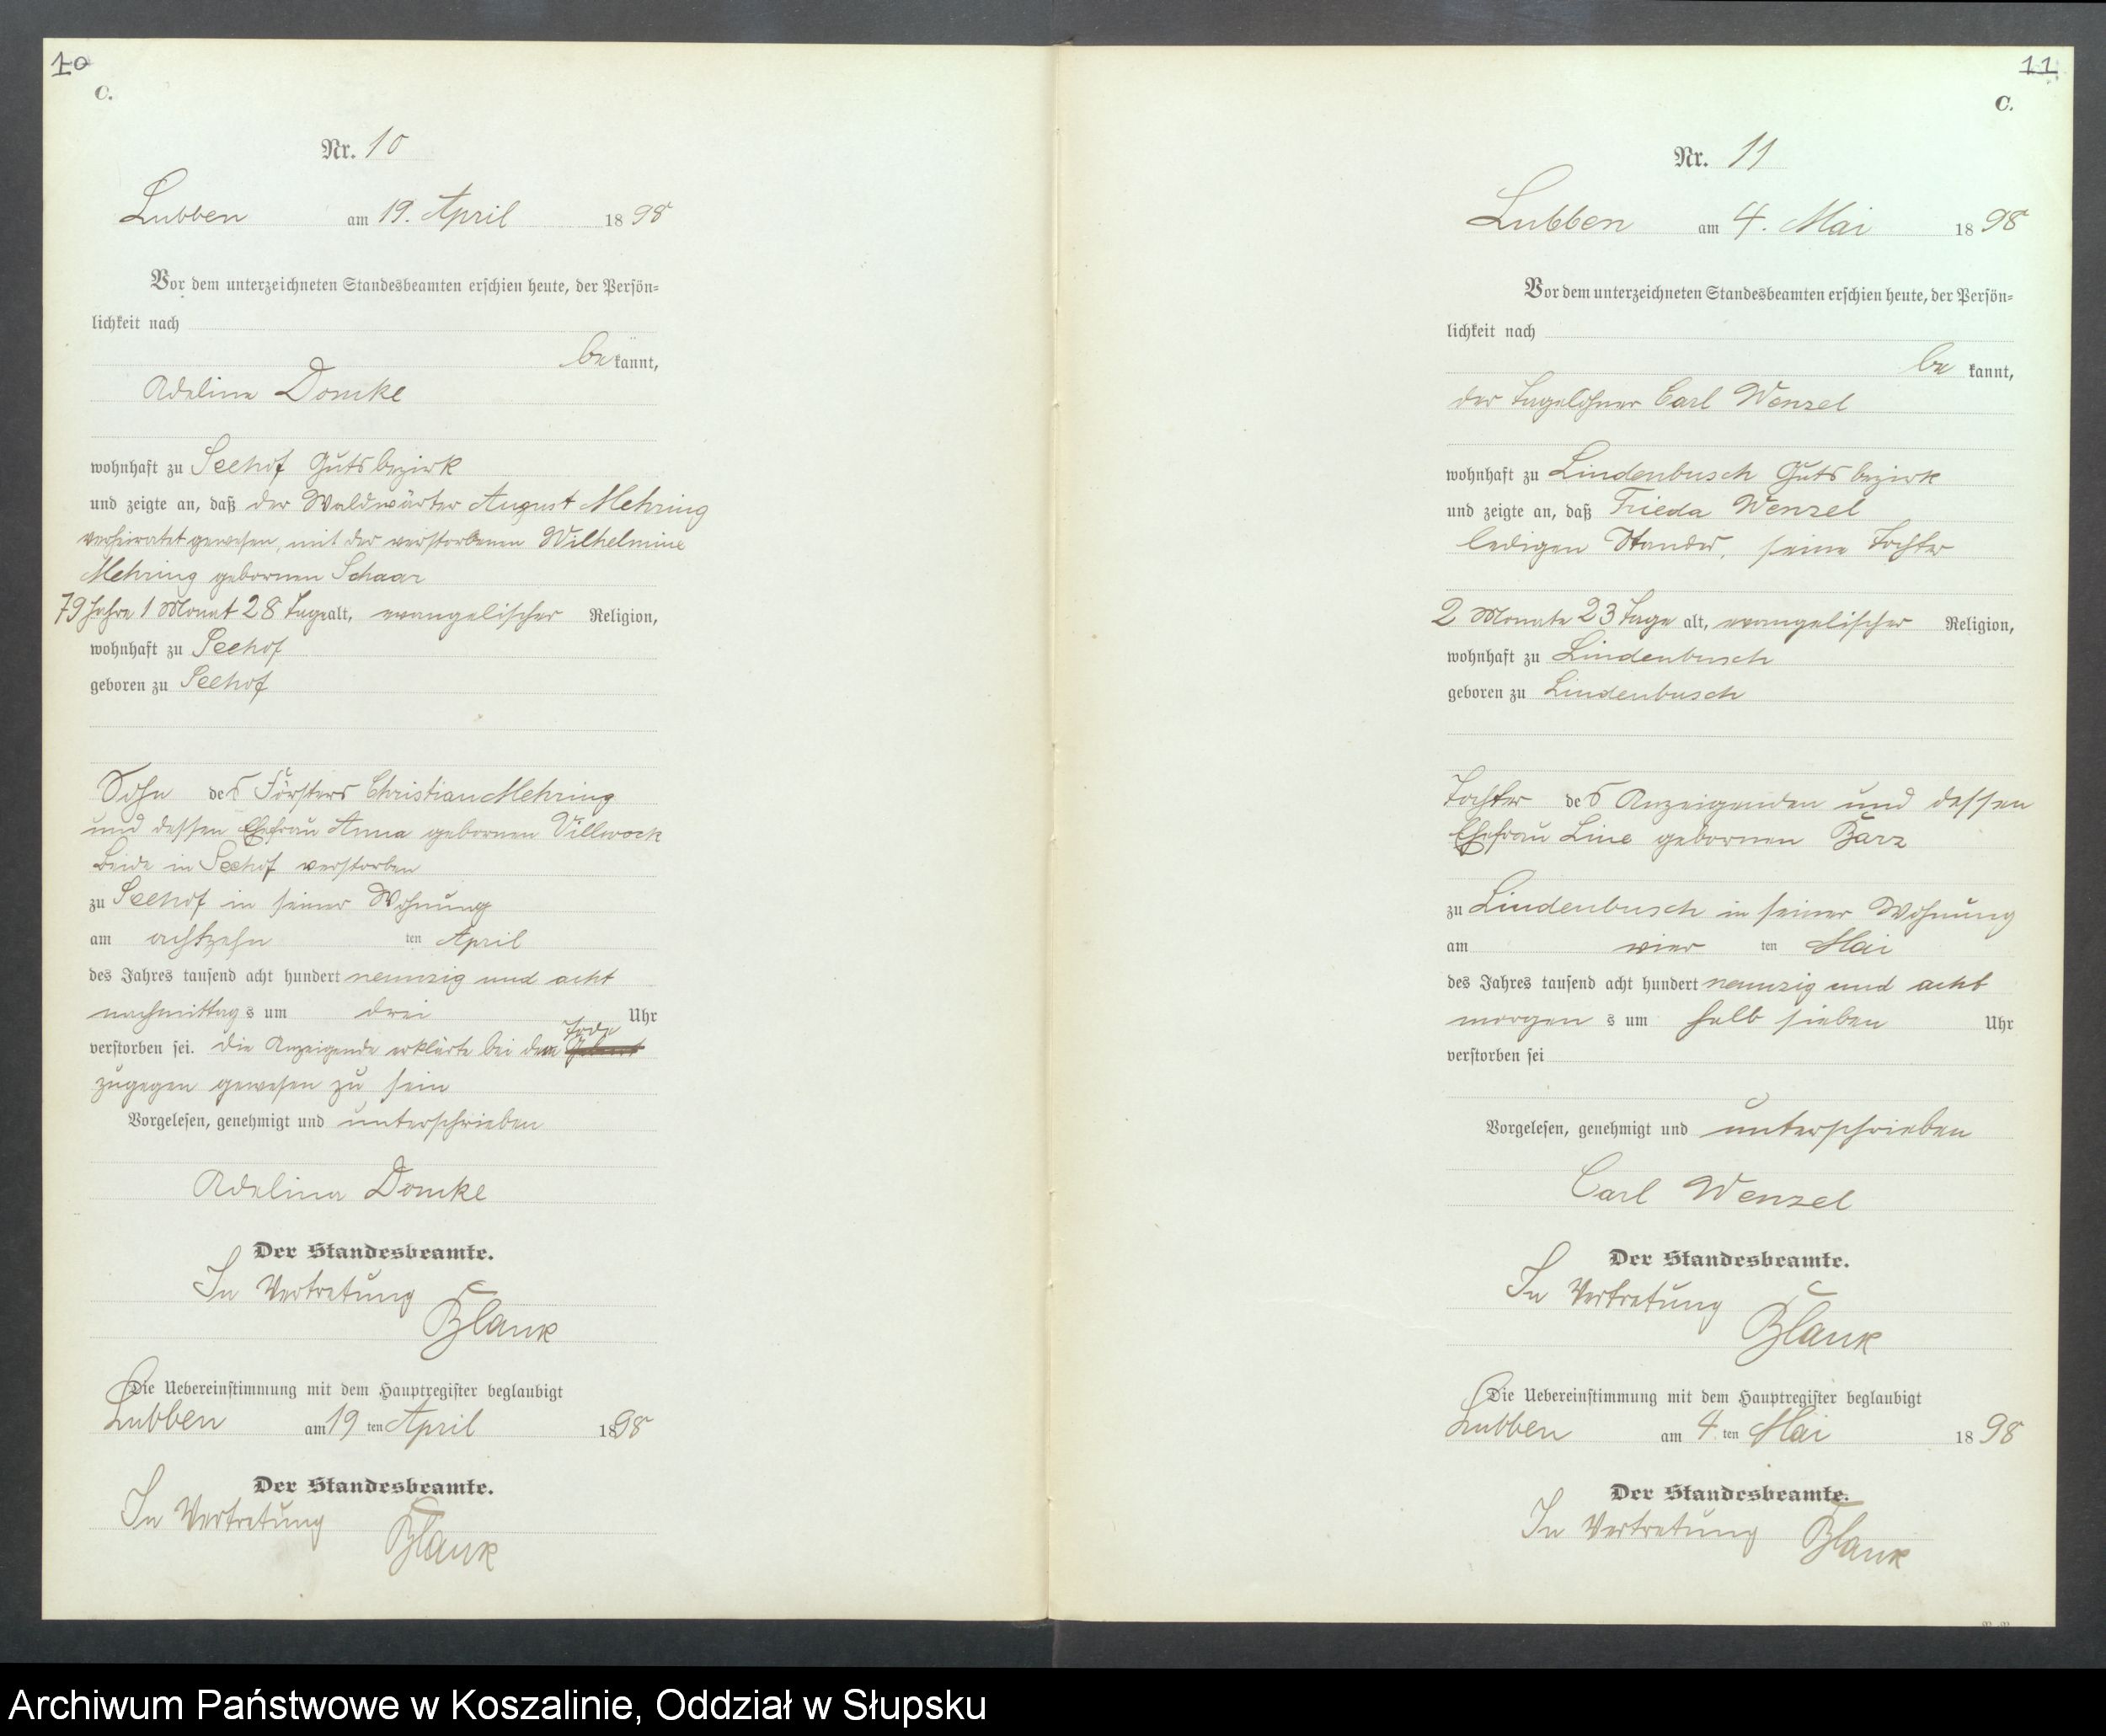 10
C.
Nr. 10
Lubben am 19. April 1898
Vor dem unterzeichneten Standesbeamten erschien heute, der Persön=
lichkeit nach
bekannt,
Adeline Domke
wohnhaft zu Seehof Gutsbezirk
und zeigte an, daß der Waldwärter August Mehring
verheiratet gewesen, mit der verstorbenen Wilhelmine
Mehring gebornen Schaar
79 Jahre 1 Monat 28 Tage alt, evangelischer Religion,
wohnhaft zu Seehof
geboren zu Seehof
Sohn des Försters Christian Mehring
und dessen Ehefrau Anna gebornen Villwock
beide in Seehof verstorben
zu Seehof in seiner Wohnung
am achtzehn ten April
des Jahres tausend acht hundert neunzig und acht
nachmittags um drei Uhr
Tode
verstorben sei. Die Anzeigende erklärte bei dem Geburt
zugegen gewesen zu sein
Vorgelesen, genehmigt und unterschrieben
Adeline Domke
Der Standesbeamte.
In Vertretung
Blank
Die Uebereinstimmung mit dem Hauptregister beglaubigt
Lubben am 19 ten April 1898
Der Standesbeamte.
In Vertretung
Blank
11
C.
Nr. 11
Lubben am 4. Mai 1898
Vor dem unterzeichneten Standesbeamten erschien heute, der Persön=
lichkeit nach
be kannt,
der Tagelöhner Carl Wenzel
wohnhaft zu Lindenbusch Gutsbezirk
und zeigte an, daß Frieda Wenzel
ledigen Standes, seine Tochter
2 Monate 23 Tage alt, evangelischer Religion,
wohnhaft zu Lindenbusch
geboren zu Lindenbusch
Tochter des Anzeigenden und dessen
Ehefrau Line gebornen Barz
zu Lindenbusch in seiner Wohnung
am vier ten Mai
des Jahres tausend acht hundert neunzig und acht
morgen s um halb sieben Uhr
verstorben sei
Vorgelesen, genehmigt und unterschrieben
Carl Wenzel
Der Standesbeamte.
In Vertretung
Blank
Die Uebereinstimmung mit dem Hauptregister beglaubigt
Lubben am 4. ten Mai 1898
Der Standesbeamte.
In Vertretung Blank
Archiwum Państwowe w Koszalinie, Oddział w Słupsku